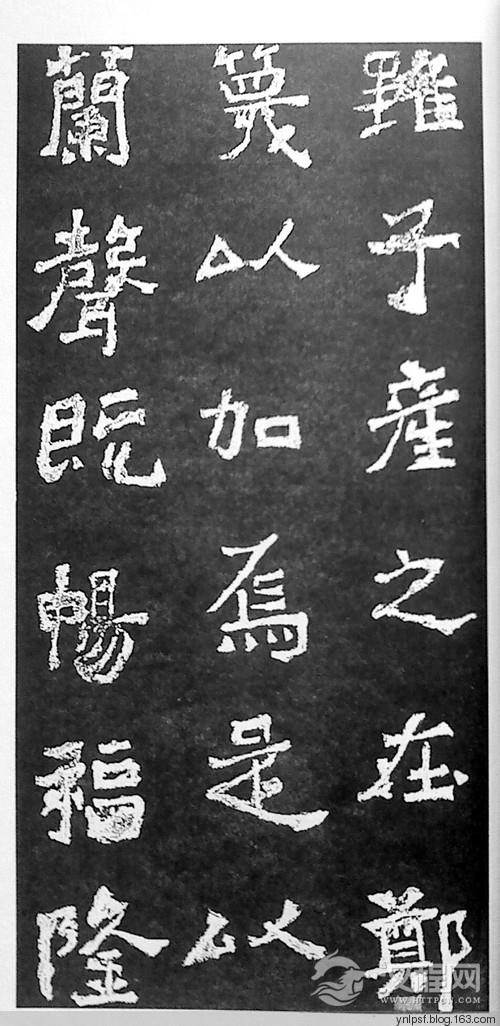 雖子產之在鄭
篾以加焉是以
蘭聲既暢福隆
HTTPCN.COM
ynlpsf.blog.163.com